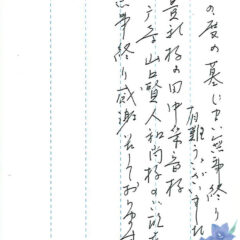 の度の墓じまい無事終り
有難うございました
貴社様の田中栄音様
山上賢人和尚様の
無事終り感謝致しております